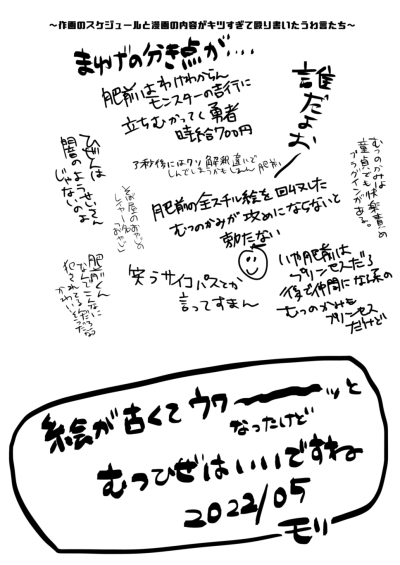 ～作画のスケジュールと漫画の内容がキツすぎて殴り書いたうわ言たち～
まゆげの分き点が・・・・
誰だよお
肥前はわけわからん
モンスターの吉行に
立ちむかってく勇者
時給700円
7秒後にはクソ解釈違いで
しんでしまうかもしれん肥前
ひぜんは
闇のようせいさん
じゃないのよ
むつのかみは
童貞でも快楽責め
プラグインがある。
そば屋のおやじの
肥前の全スチル絵を回収した
むつのかみが攻めにならないと
動かない
笑うサイコパスとか
言ってすまん
いや肥前は
プリンセスだろ
後で仲間になる系の
むつのかみも
プリンセス
だけど
肥前くん
なんでこんなに
かわいい
絵が古くてウワーーーッと
なったけど
むつひぜはいいですね
2022/05
モリ